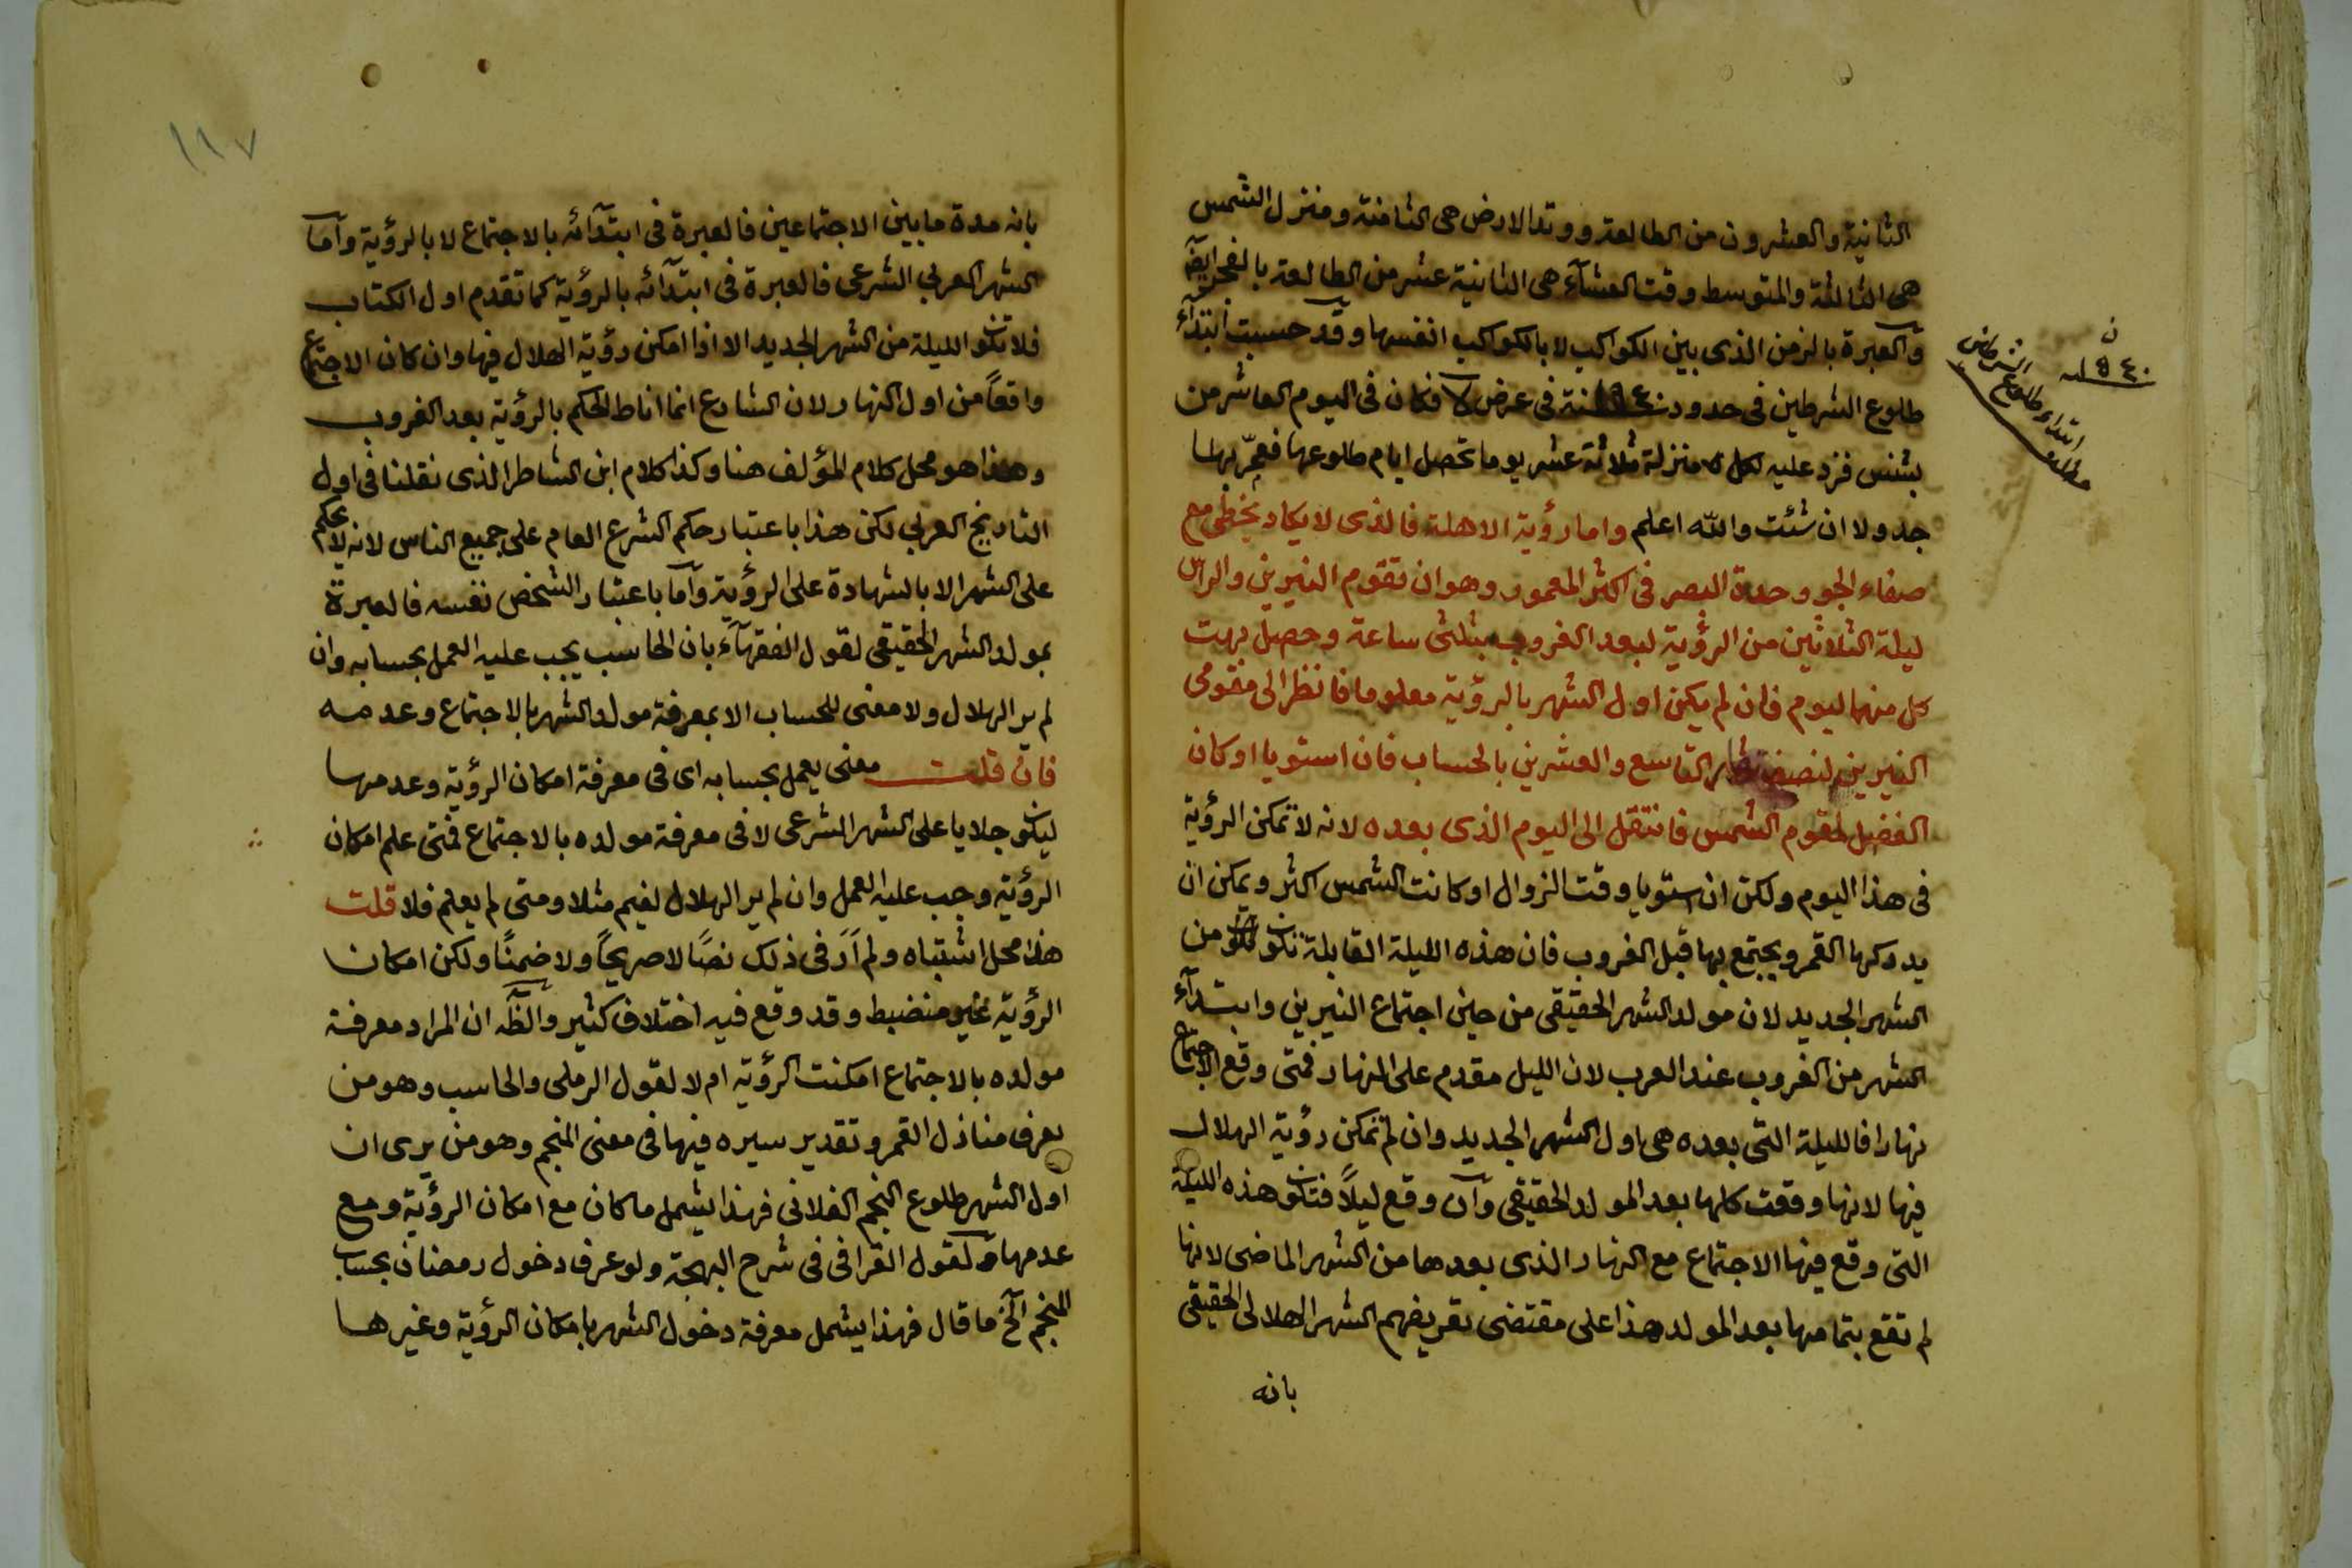 الثانية والعشرون من الطالعة ووتد الارض هى الثامنة ومنزل الشمس
هى الثالثة والمتوسط وقت العشآء هى الثانية عشر من الطالعة بالفجر
والعبرة بالزمن الذى بين الكواكب لا بالكواكب انفسها وقد حسبت ابتدآء
طلوع الشرطين فى حدود فى عرض فكان فى اليوم العاشر من
بشنس فزد عليه لكل منزلة ثلاثة عشر يوما تحصل ايام طلوعها بها
جدولا ان شئت والله اعلم واما رؤية الاهلة فالذى لا يكاد يخطى مع
صفاء الجو وحدة البصر فى اكثر المعمور وهو ان تقوم النيرين والراس
ليلة الثلاثين من الرؤية لبعد الغروب بثلثى ساعة وحصل بهت
كل منهما ليوم فان لم يكن اول الشهر بالرؤية معلوما فانظر الى مقومى
النيرين لنصف التاسع والعشرين بالحساب فان استويا او كان
الفضل لمقوم الشمس فانتقل الى اليوم الذى بعده لانه لا تمكن الرؤية
فى هذا اليوم ولكن ان استويا وقت الزوال او كانت الشمس اكثر ويمكن ان
يدركها القمر ويجتمع بها قبل الغروب فان هذه الليلة القابلة تكون من
الشهر الجديد لان مولد الشهر الحقيقى من حين اجتماع النيرين وابتدآء
الشهر من الغروب عند العرب لان الليل مقدم على النهار فمتى وقع الاجتماع
نهارا فالليلة التى بعده هى اول الشهر الجديد وان لم تمكن رؤية الهلال
فيها لانها وقعت كلها بعد المولد الحقيقى وان وقع ليلاً فتكون هذه الليلة
التى وقع فيها الاجتماع مع النهار الذى بعدها من الشهر الماضى لانها
لم تقع بتمامها بعد المولد هذا على مقتضى تعريفهم الشهر الهلالى الحقيقى
بانه
ن
ابتداء طلوع الشرطين
١١٧
بانه مدة ما بين الاجتماعين فالعبرة فى ابتدآئه بالاجتماع لا بالرؤية وأما
الشهر العربي الشرعى فالعبرة فى ابتدآئه بالرؤية كما تقدم اول الكتاب
فلا تكون الليلة من الشهر الجديد الا اذا امكن رؤية الهلال فيها وان كان الاجتماع
واقعاً من اول النهار لان الشارع انما اناط الحكم بالرؤية بعد الغروب
وهذا هو محل كلام المؤلف هنا وكذا كلام ابن الشاطر الذى نقلنا فى اول
التاريخ العربي لكن هذا باعتبار حكم الشرع العام على جميع الناس لانه لا يحكم
على الشهر الا بالشهادة على الرؤية وأما باعتبار الشخص نفسه فالعبرة
بمولد الشهر الحقيقى لقول الفقهآء بان الحاسب يجب عليه العمل بحسابه وان
لم ير الهلال ولا معنى للحساب الا بمعرفة مولد الشهر بالاجتماع وعدمه
فان قلت معنى يعمل بحسابه اى فى معرفة امكان الرؤية وعدمها
ليكون جلايا على الشهر الشرعى لا فى معرفة مولده بالاجتماع فمتى علم امكان
الرؤية وجب عليه العمل وان لم ير الهلال لغيم مثلا ومتى لم يعلم فلا قلت
هذا محل اشتباه ولم أرَ فى ذلك نصاً لا صريحاً ولا ضمنًا ولكن امكان
الرؤية غير منضبط وقد وقع فيه اختلاف كثير والظَّه ان المراد معرفة
مولده بالاجتماع امكنت الرؤية ام لا لقول الرملى والحاسب وهو من
يعرف منازل القمر وتقدير سيره فيها فى معنى المنجم وهو من يرى ان
اول الشهر طلوع النجم الفلانى فهذا يشمل ما كان مع امكان الرؤية ومع
عدمها ولقول القرافى فى شرح البهجة ولو عرف دخول رمضان بحساب
المنجم الخ ما قال فهذا يشمل معرفة دخول الشهر بامكان الرؤية وغيرها